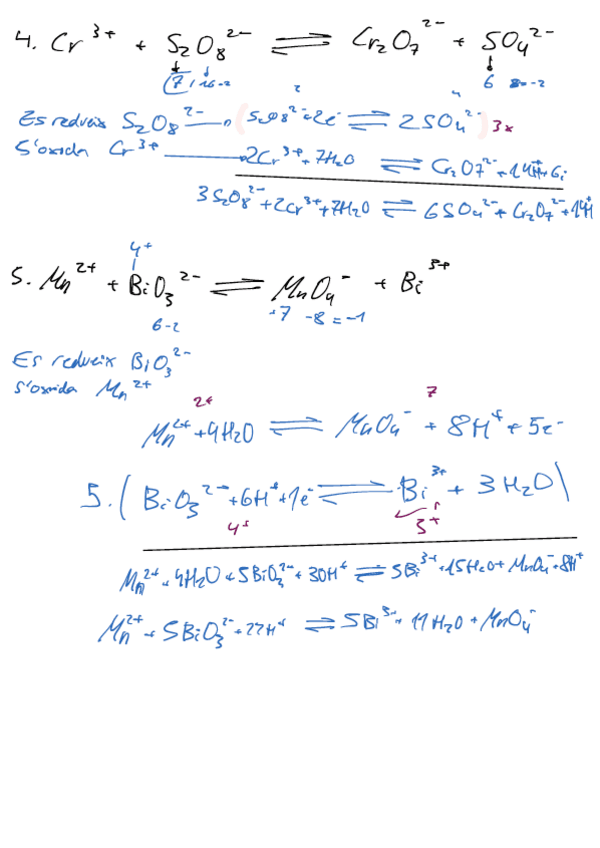 4. Cr³⁺ + S₂O₈²⁻ ⇌ Cr₂O₇²⁻ + SO₄²⁻
7 16-2 6 8·-2
Es redueix S₂O₈²⁻ → (S₂O₈²⁻+2e⁻ ⇌ 2SO₄²⁻) 3x
S'oxida Cr³⁺ → 2Cr³⁺+7H₂O ⇌ Cr₂O₇²⁻+14H⁺+6
3S₂O₈²⁻+2Cr³⁺+7H₂O ⇌ 6SO₄²⁻+Cr₂O₇²⁻+14H
4+
5. Mn²⁺ + BiO₃²⁻ ⇌ MnO₄⁻ + Bi³⁺
6-2 +7 -8=-1
Es redueix BiO₃²⁻
S'oxida Mn²⁺
2+ 7
Mn²⁺+4H₂O ⇌ MnO₄⁻ + 8H⁺ + 5e⁻
5.(BiO₃²⁻+6H⁺+1e⁻ ⇌ Bi³⁺ + 3H₂O)
4⁺ 3⁺
Mn²⁺+4H₂O+5BiO₃²⁻+30H⁺ ⇌ 5Bi³⁺+15H₂O+MnO₄⁻+8H⁺
Mn²⁺+5BiO₃²⁻+22H⁺ ⇌ 5Bi³⁺+11H₂O+MnO₄⁻